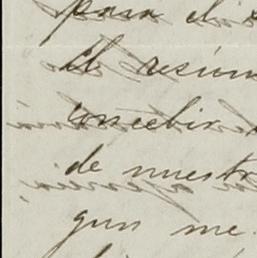 para el
El resum
concebir
de nuestr
gun me